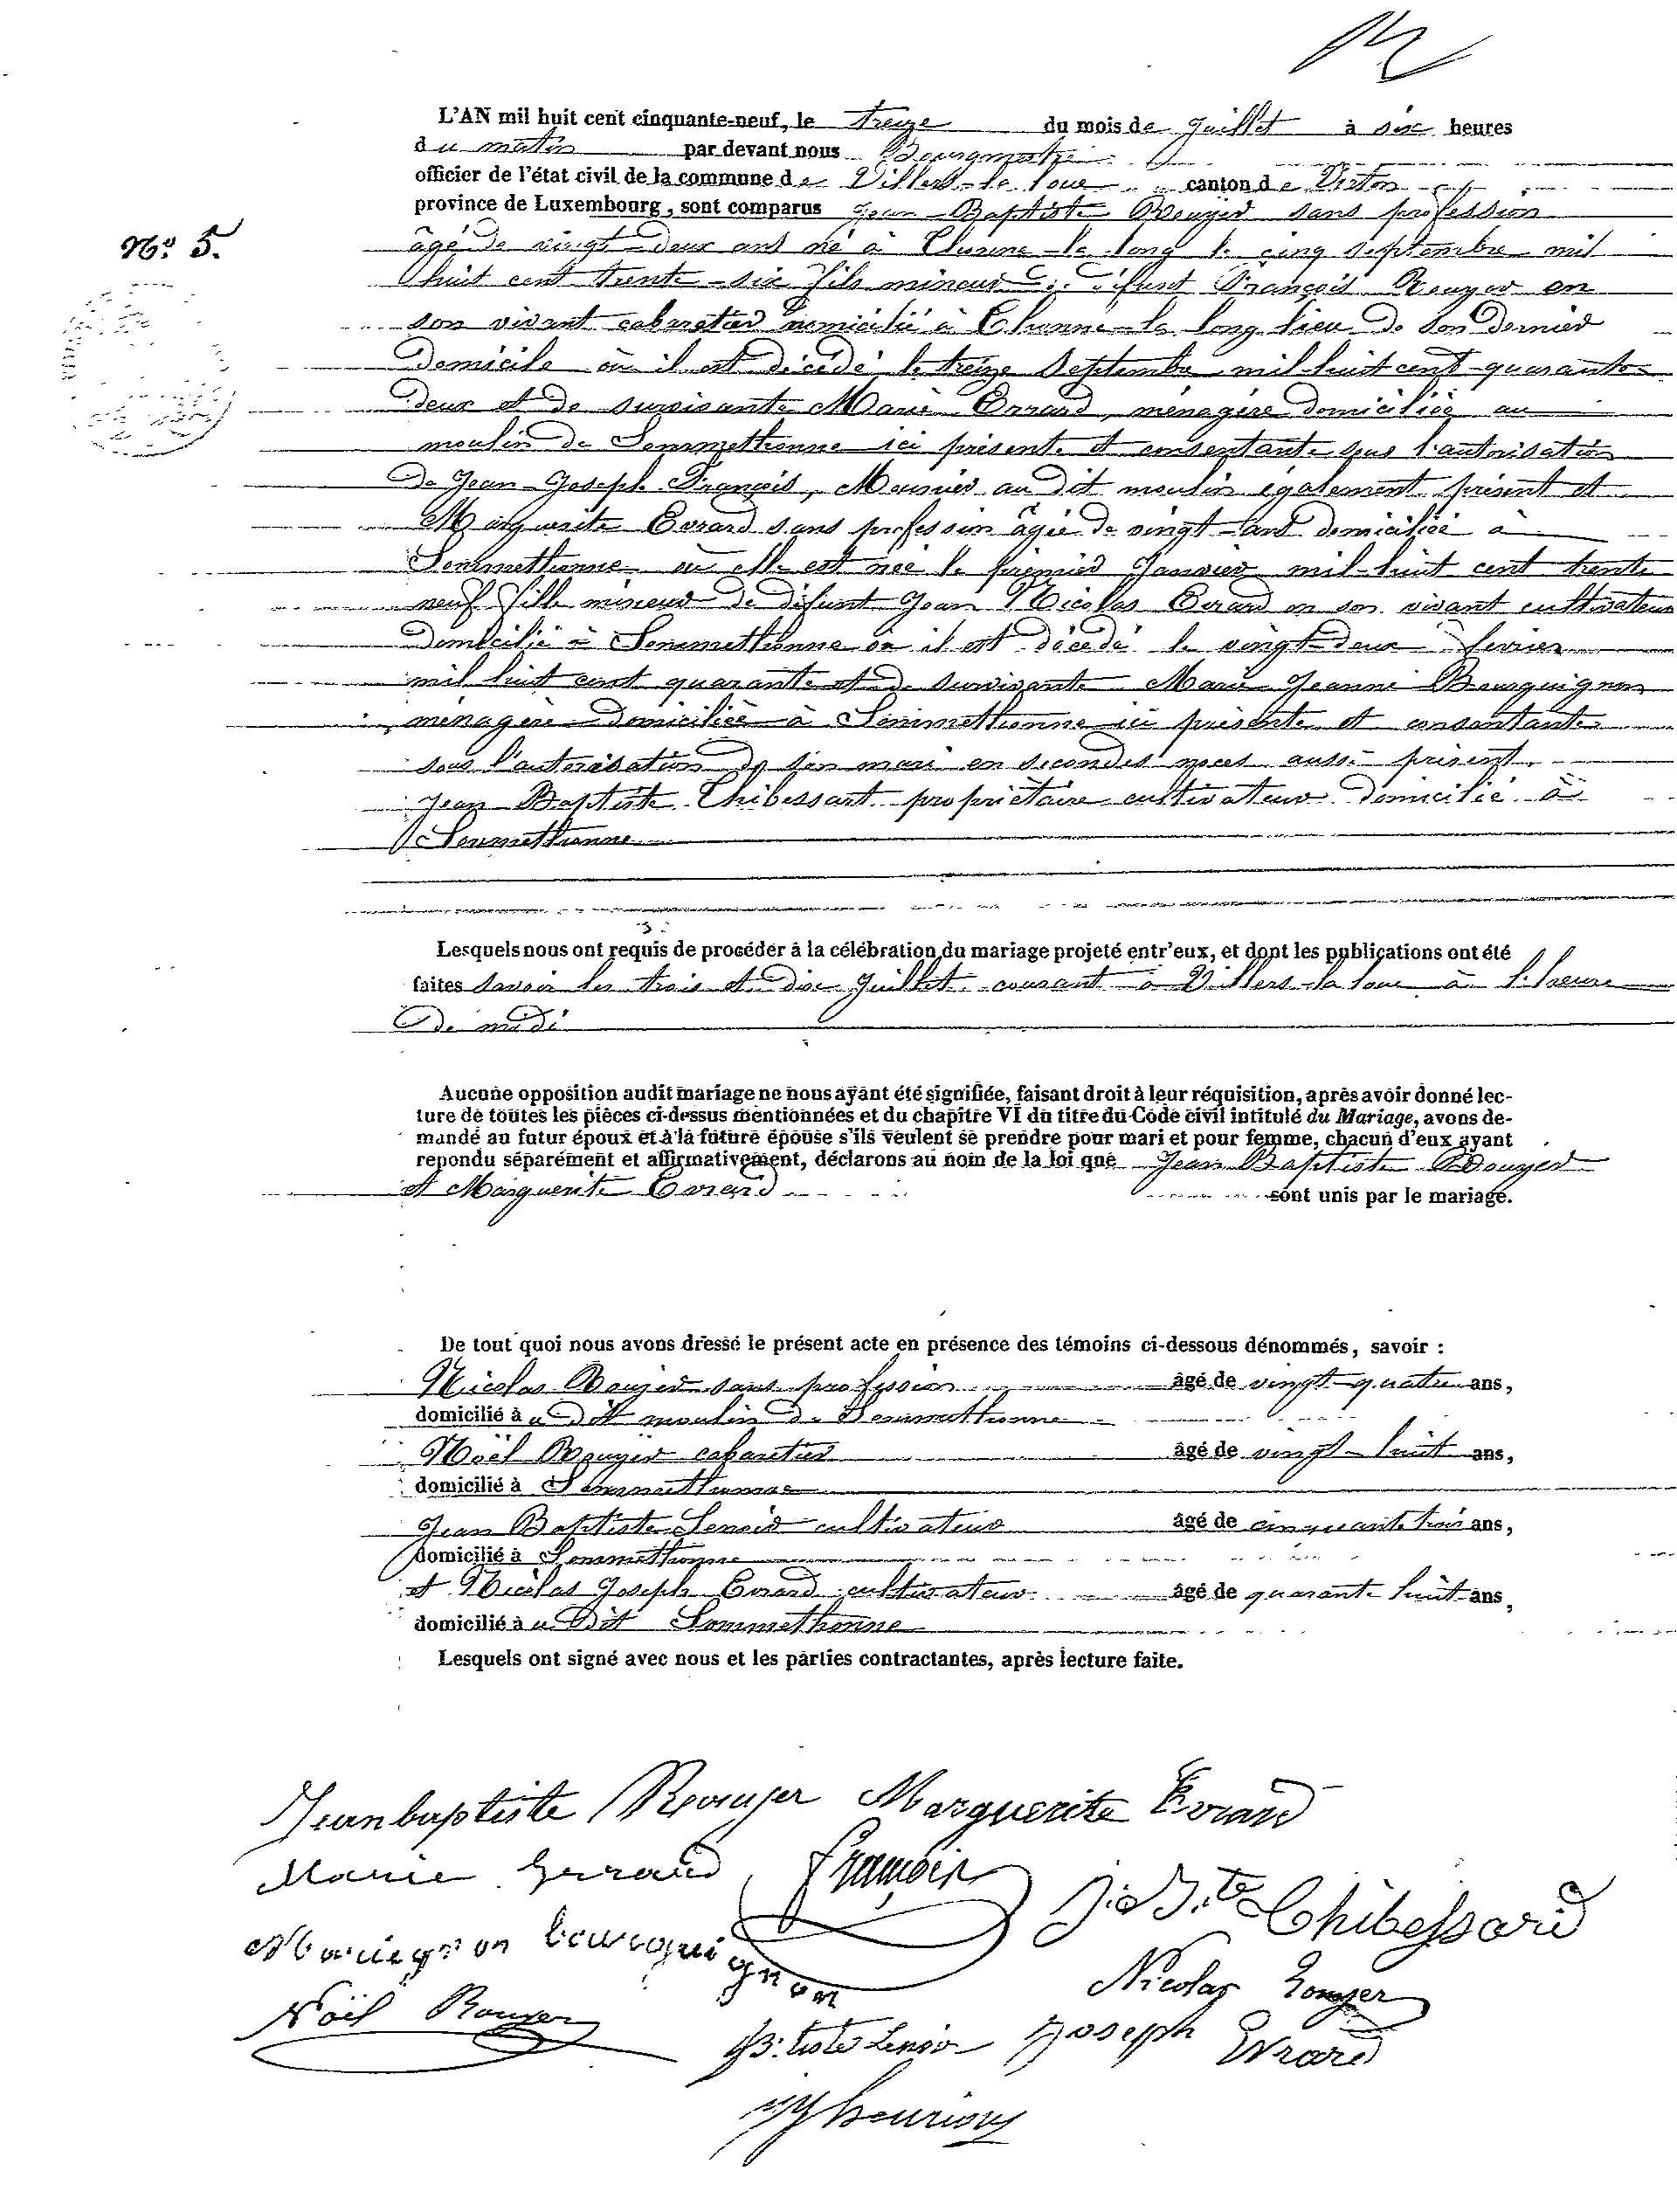 L'AN mil huit cent cinquante-neuf, le treize du mois de Juillet à six heures
du matin par devant nous Bourgmestre
officier de l'état civil de la commune de Villers-la-loue canton de Virton
province de Luxembourg, sont comparus Jean-Baptiste Rouyer sans profession
N° 5.
âgé de vingt-deux ans né à Thonne-la-long le cinq septembre mil
huit cent trente-six fils mineur de défunt François Rouyer en
son vivant cabaretier domicilié à Thonne-la long lieu de son dernier
domicile où il est décédé le treize septembre mil huit cent quarante
deux et de survivante Marie Evrard, ménagère domiciliée au
moulin de Sommethonne ici présente et consentante sous l'autorisation
de Jean-Joseph François, Meunier au dit moulin également présent et
Marguerite Evrard sans profession âgée de vingt ans domiciliée à
Sommethonne où elle est née le premier Janvier mil-huit cent trente
neuf fille mineur de défunt Jean Nicolas Evrard en son vivant cultivateur
domicilié à Sommethonne où il est décédé le vingt-deux fevrier
mil huit cent quarante et de survivante Marie Jeanne Bourguignon
ménagère domiciliée à Sommethonne ici présente et consentante
sous l'autorisation de son mari en secondes noces aussi présent
Jean Baptiste Thibessart propriétaire cultivateur domicilié à
Sommethonne
Lesquels nous ont requis de procéder à la célébration du mariage projeté entr'eux, et dont les publications ont été
faites savoir les trois et dix Juillet courant à Villers-la loue à l'heure
de midi
Aucune opposition audit mariage ne nous ayant été signifiée, faisant droit à leur réquisition, après avoir donné lec-
ture de toutes les pièces ci-dessus mentionnées et du chapitre VI du titre du Code civil intitulé du Mariage, avons de-
mandé au futur époux et à la future épouse s'ils veulent se prendre pour mari et pour femme, chacun d'eux ayant
repondu séparément et affirmativement, déclarons au nom de la loi que Jean Baptiste Rouyer
et Marguerite Evrard sont unis par le mariage.
De tout quoi nous avons dressé le présent acte en présence des témoins ci-dessous dénommés, savoir :
Nicolas Rouyer sans profession âgé de vingt-quatre ans,
domicilié au dit moulin de Sommethonne
Noël Rouyer cabaretier âgé de vingt-huit ans,
domicilié à Sommethonne
Jean Baptiste Lenoir cultivateur âgé de cinquante trois ans,
domicilié à Sommethonne
et Nicolas Joseph Evrard cultivateur âgé de quarante huit ans,
domicilié au Dit Sommethonne
Lesquels ont signé avec nous et les parties contractantes, après lecture faite.
Jeanbaptiste Rouyer Marguerite Evrard
Marie Evrard François J.B.te Thibessard
Marie jean bourguignon
Nicolas Rouyer
Noël Rouyer
JB.tiste Lenoir Joseph Evrard